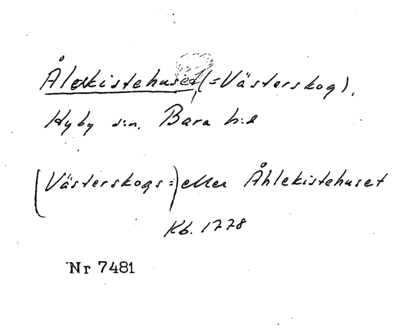 Ålekistehuset (=Västerskog),
Hyby s:n, Bara h:d
(Västerskogs=) eller Åhlekistehuset
Kb. 1778
Nr 7481